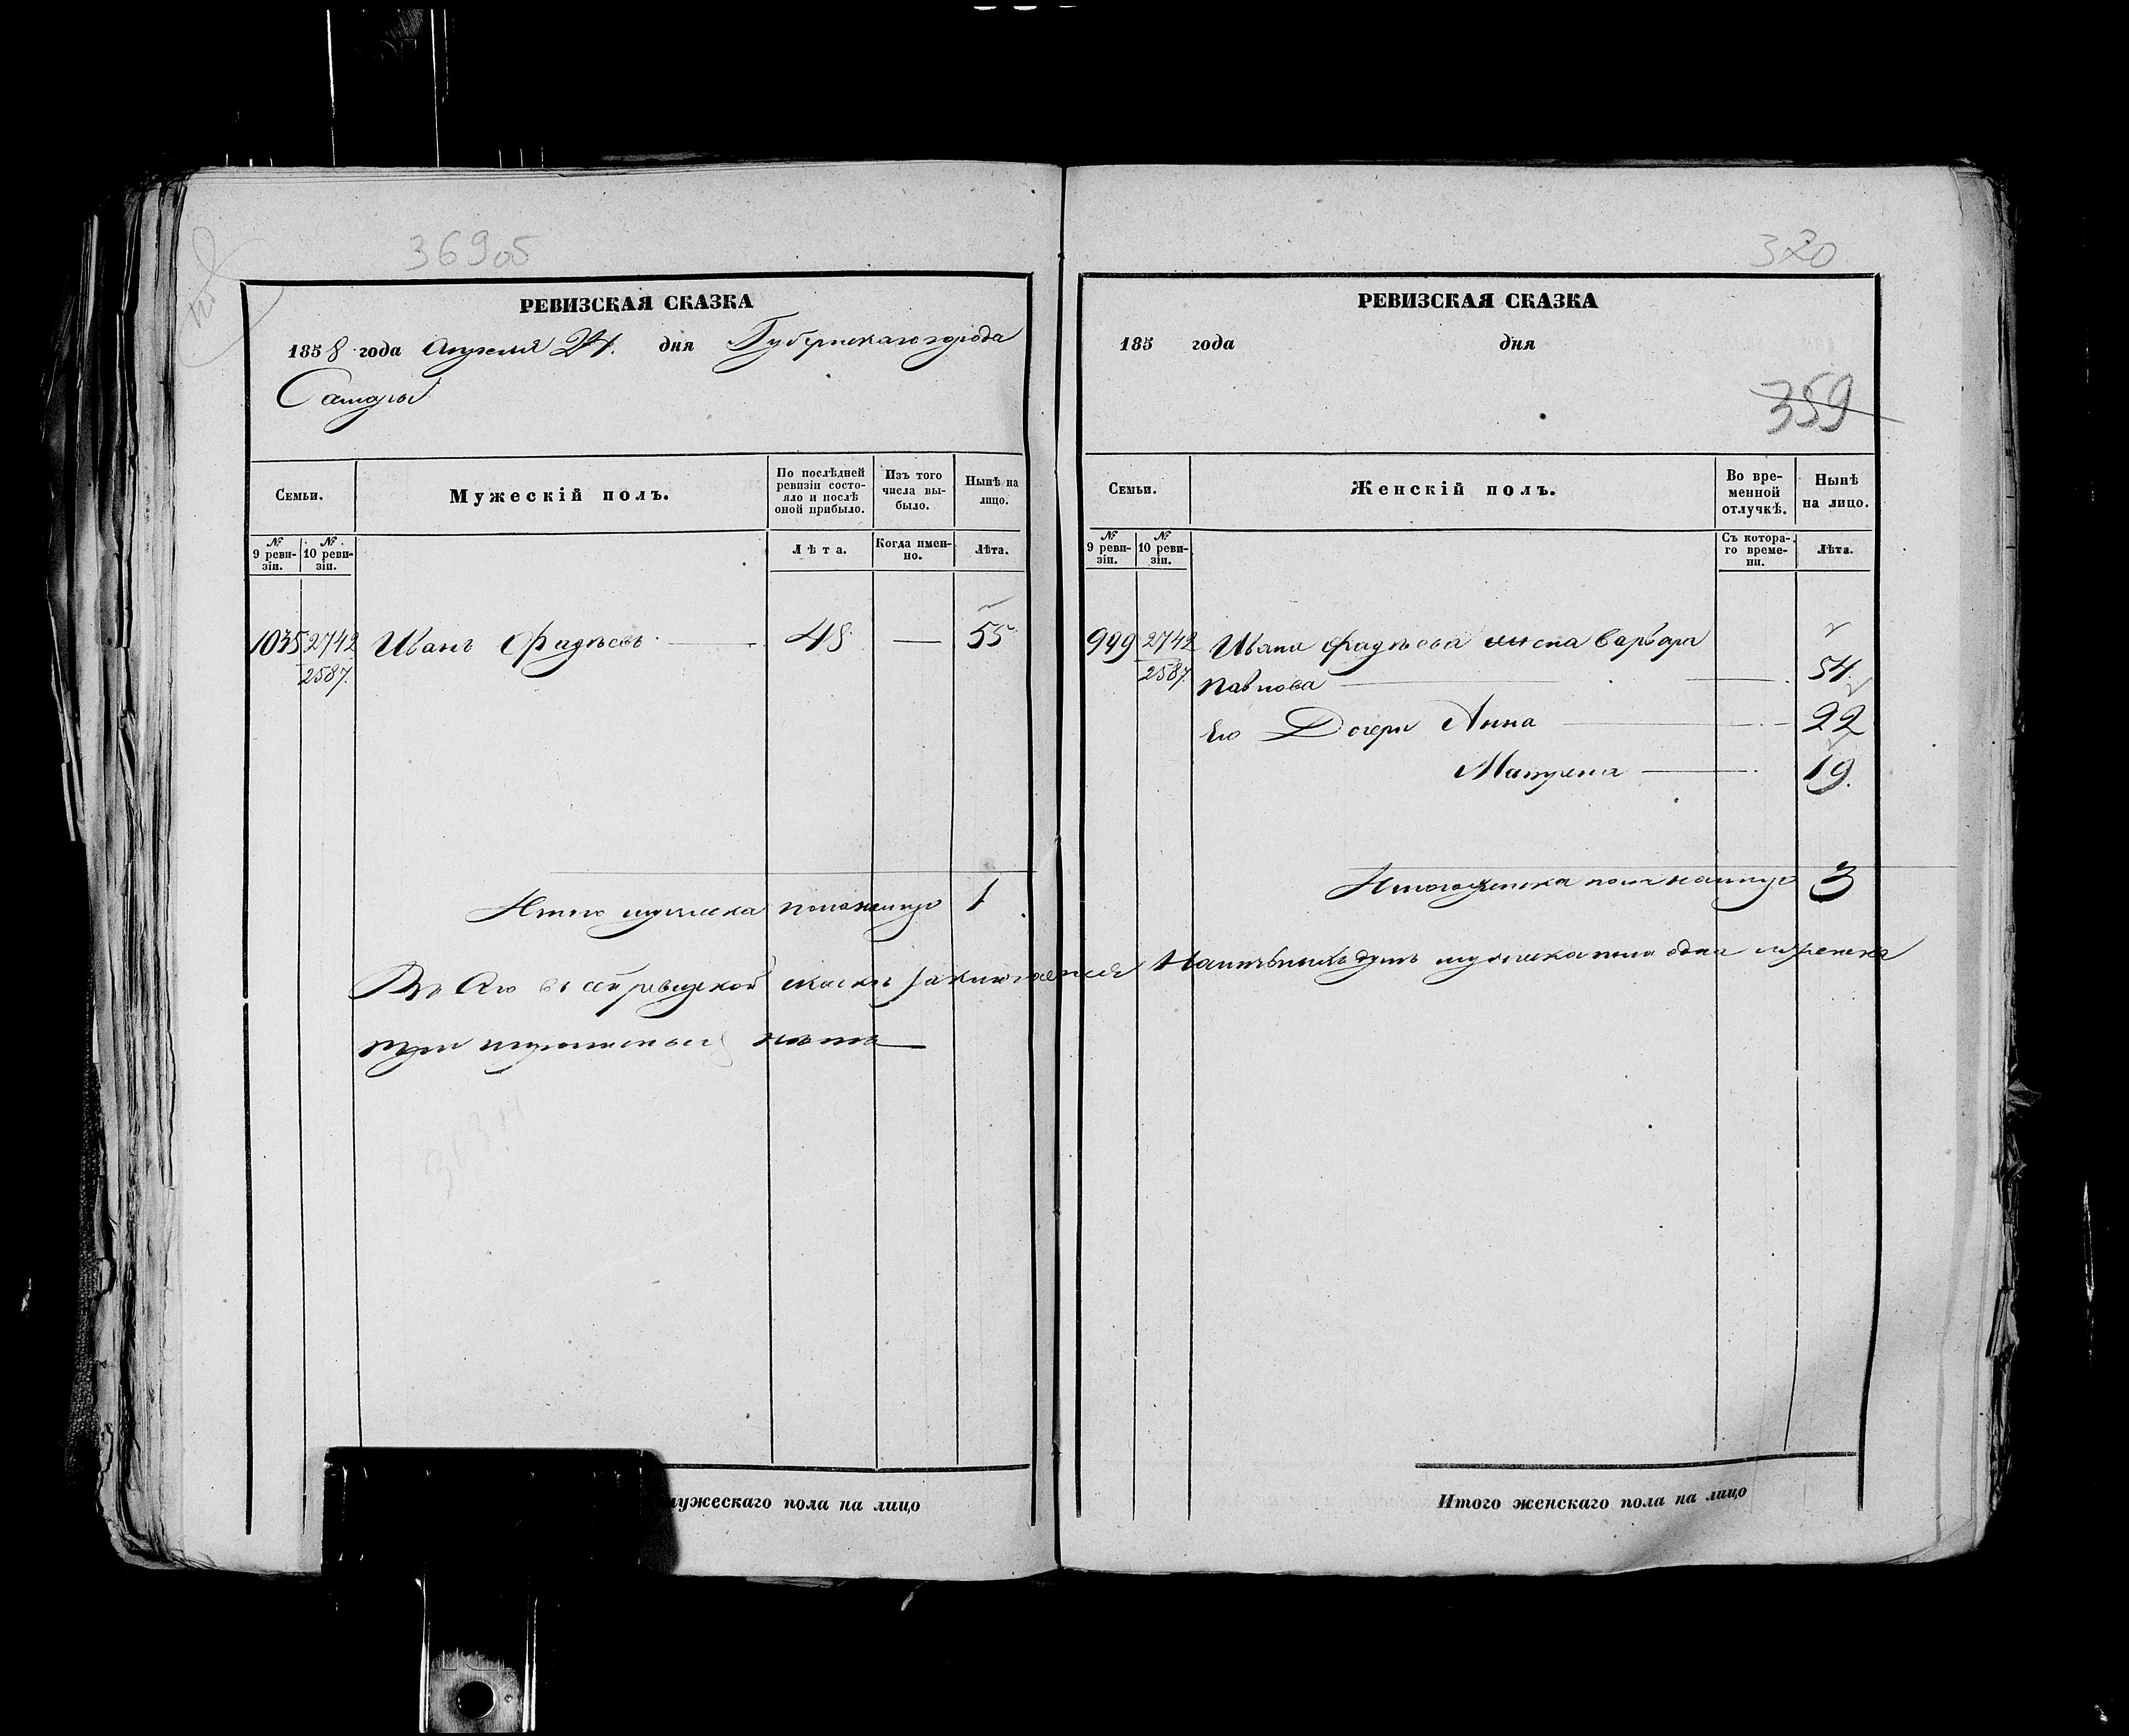 369об
РЕВИЗСКАЯ СКАЗКА
1858 года Апреля 24. дня Губернскаго города
Самары
Семьи.
Мужескій полъ.
По послѣдней ревизіи состояло и послѣ оной прибыло.
Изъ того числа выбыло.
Нынѣ на лицо.
№ 9 ревизіи.
№ 10 ревизіи.
Лѣта.
Когда именно.
Лѣта.
1035 2742 Иванъ Фадѣевъ 48 — 55
2587
Итого мужеска пола налицо 1
мужескаго пола на лицо
370
РЕВИЗСКАЯ СКАЗКА
185 года дня
359
Семьи.
Женскій полъ.
Во временной отлучкѣ.
Нынѣ на лицо.
№ 9 ревизіи.
№ 10 ревизіи.
Съ котораго времени.
Лѣта.
999 2742 Ивана Фадѣева жена Варвара
2587 Павлова 54
Его Дочери Анна 22
Матрена 19.
Итого женска пола налицо 3
въ сей ревизской сказкѣ заключается Наличныхъ душъ мужеска пола одна женска
три нѣтъ
Итого женскаго пола на лицо